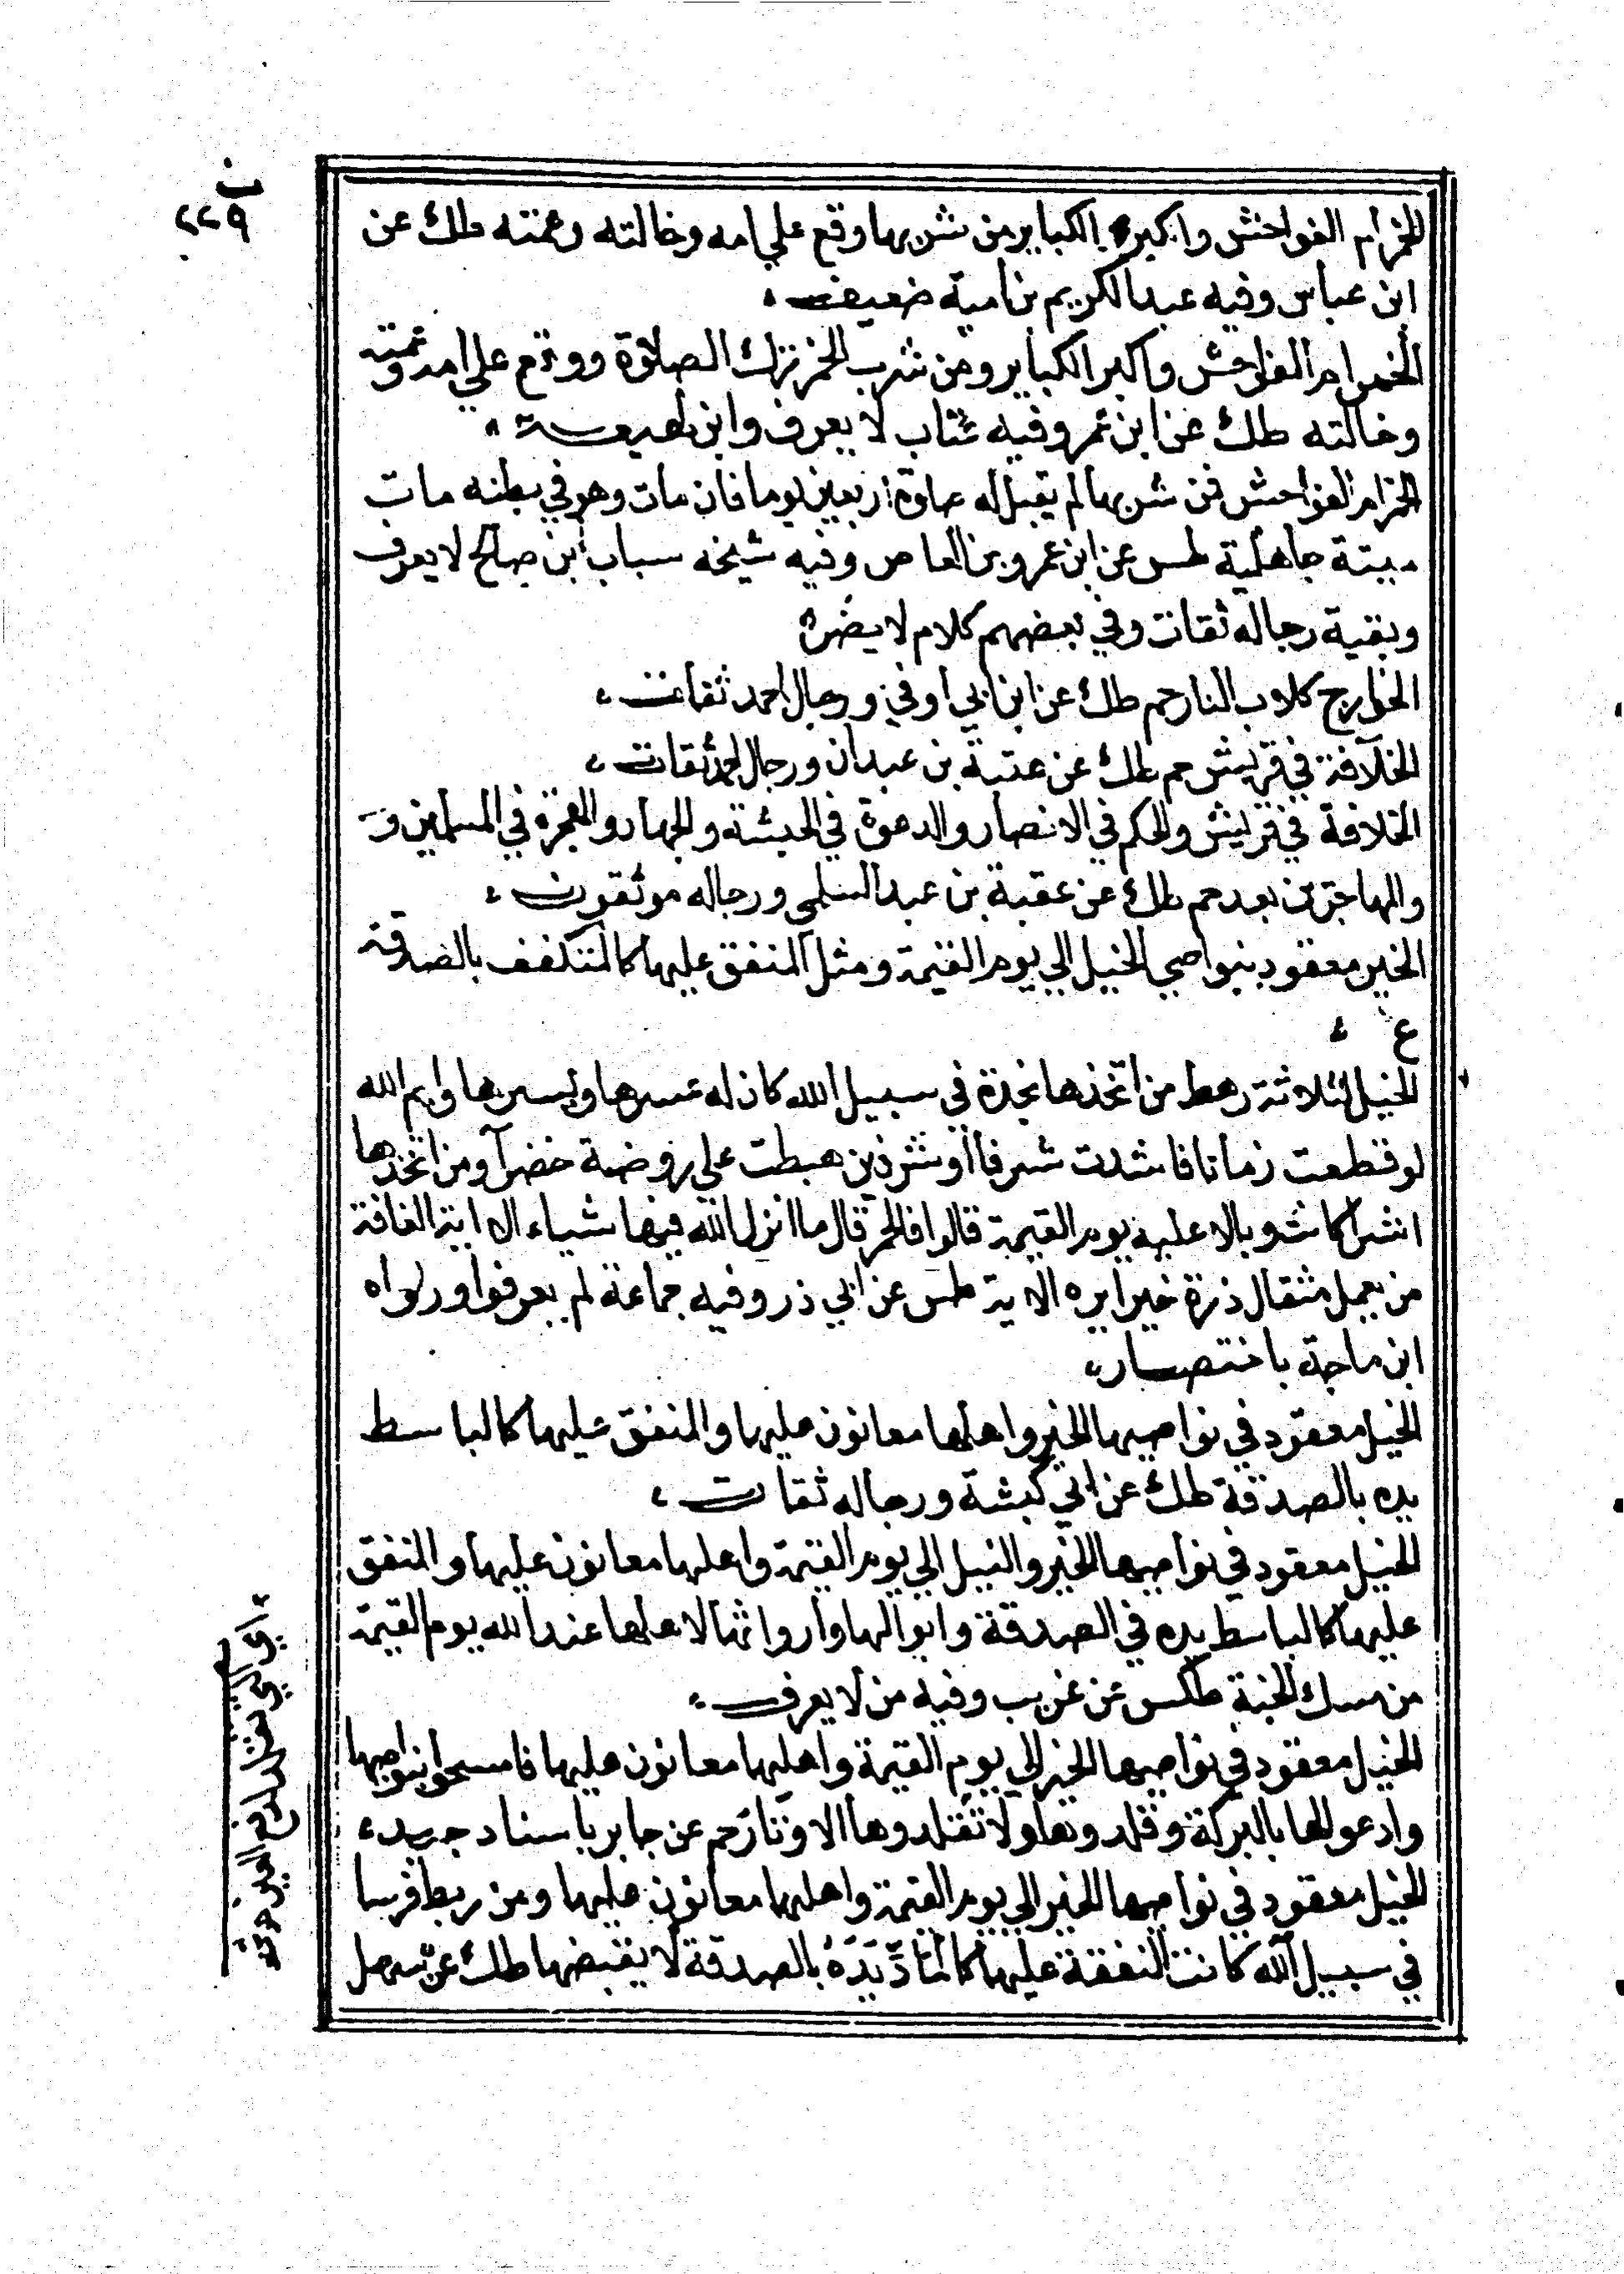 ب
٢٢٩
الخمر ام الفواحش واكبر الكباير من شربها وقع علي امه وخالته وعمته طك عن
ابن عباس وفيه عبد الكريم بن امية ضعيف
الخمر ام الفواحش واكبر الكباير ومن شرب الخمر ترك الصلاة ووقع علي امه وعمته
وخالته طك عن ابن عمر وفيه عتاب لا يعرف وابن لهيعة
الخمر ام الفواحش فمن شربها لم يقبل له صلوة اربعين يوما فان مات وهو في بطنه مات
ميتة جاهلية طس عن ابن عمرو بن العاص وفيه شيخه سباب ابن صالح لا يعرف
وبقية رجاله ثقات وفي بعضهم كلام لا يضره
الخوارج كلاب النار حم طك عن ابن ابي اوفي ورجال احمد ثقات
الخلافة في قريش حم طك عن عتبة بن عبدان ورجال احمد ثقات
الخلافة في قريش والحكم في الانصار والدعوة في الحبشة والجهاد والهجرة في المسلمين و
والمهاجرين بعد حم طك عن عقبة بن عبد السلمي ورجاله موثقون
الخير معقود بنواصي الخيل الي يوم القيمة ومثل المنفق عليها كالمتكفف بالصدقة
ع
الخيل لثلاثة رهط من اتخذها نجدة في سبيل الله كان له عسرها ويسرها وايم الله
لو قطعت زمانا فاشدت شرفا او شرفين هبطت علي روضة خضرآ ومن اتخذها
اشرا كانت وبالا عليه يوم القيمة قالوا فالحمر قال ما انزل الله فيها شياء الا الاية الفافة
من يعمل مثقال ذرة خيرا يره الاية طس عن ابي ذر وفيه جماعة لم يعرفوا ورواه
ابن ماجة باختصار
الخيل معقود في نواصيها الخير واهلها معانون عليها والمنفق عليها كالباسط
يده بالصدقة طك عن ابي كبشة ورجاله ثقات
الخيل معقود في نواصيها الخير والنيل الي يوم القيمة واهلها معانون عليها والمنفق
عليها كالباسط يده في الصدقة وابوالها واروا ثها لاهلها عند الله يوم القيمة
من مسك الجنة طكس عن غريب وفيه من لا يعرف
الخيل معقود في نواصيها الخير الي يوم القيمة واهلها معانون عليها فامسحوا بنواصيها
وادعوا لها بالبركة وقلدوها ولا تقلدوها الاوتار حم عن جابر باسناد جيد
الخيل معقود في نواصيها الخير الي يوم القيمة واهلها معانون عليها ومن ربط فرسا
في سبيل الله كانت النفقة عليها كالماد يده بالصدقة لا يقبضها طك عن سهل